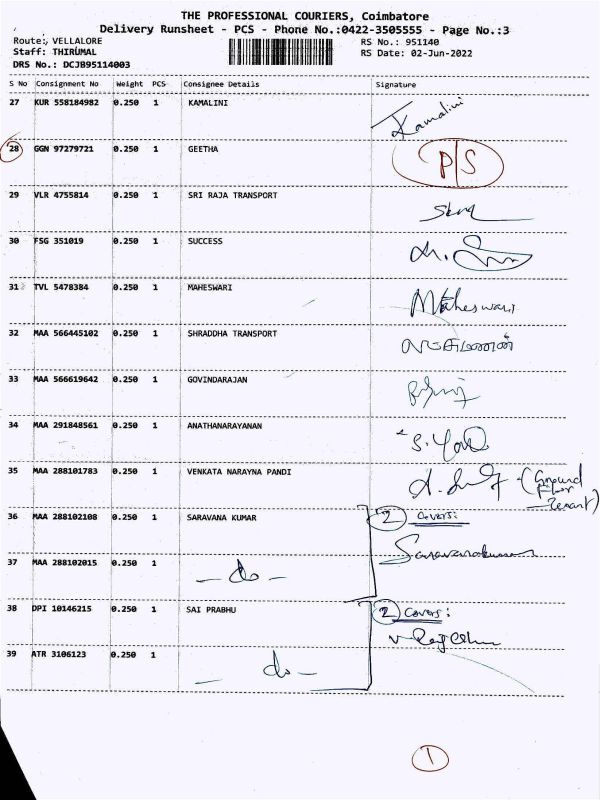 THE PROFESSIONAL COURIERS, Coimbatore
Delivery Runsheet - PCS - Phone No.:0422-3505555 - Page No.:3
Route: VELLALORE RS No.: 951140
Staff: THIRUMAL RS Date: 02-Jun-2022
DRS No.: DCJB95114003
S No Consignment No Weight PCS Consignee Details Signature
27 KUR 558184982 0.250 1 KAMALINI Kamalini
28 GGN 97279721 0.250 1 GEETHA P/S
29 VLR 4755814 0.250 1 SRI RAJA TRANSPORT
30 FSG 351019 0.250 1 SUCCESS
31 TVL 5478384 0.250 1 MAHESWARI Maheswari
32 MAA 566445102 0.250 1 SHRADDHA TRANSPORT லட்சுமணன்
33 MAA 566619642 0.250 1 GOVINDARAJAN
34 MAA 291848561 0.250 1 ANATHANARAYANAN
35 MAA 288101783 0.250 1 VENKATA NARAYNA PANDI (Ground
Floor
Tenant)
36 MAA 288102108 0.250 1 SARAVANA KUMAR 2 Covers:
Saravanakumar
37 MAA 288102015 0.250 1 - do -
38 DPI 10146215 0.250 1 SAI PRABHU 2 Covers:
39 ATR 3106123 0.250 1 - do -
1